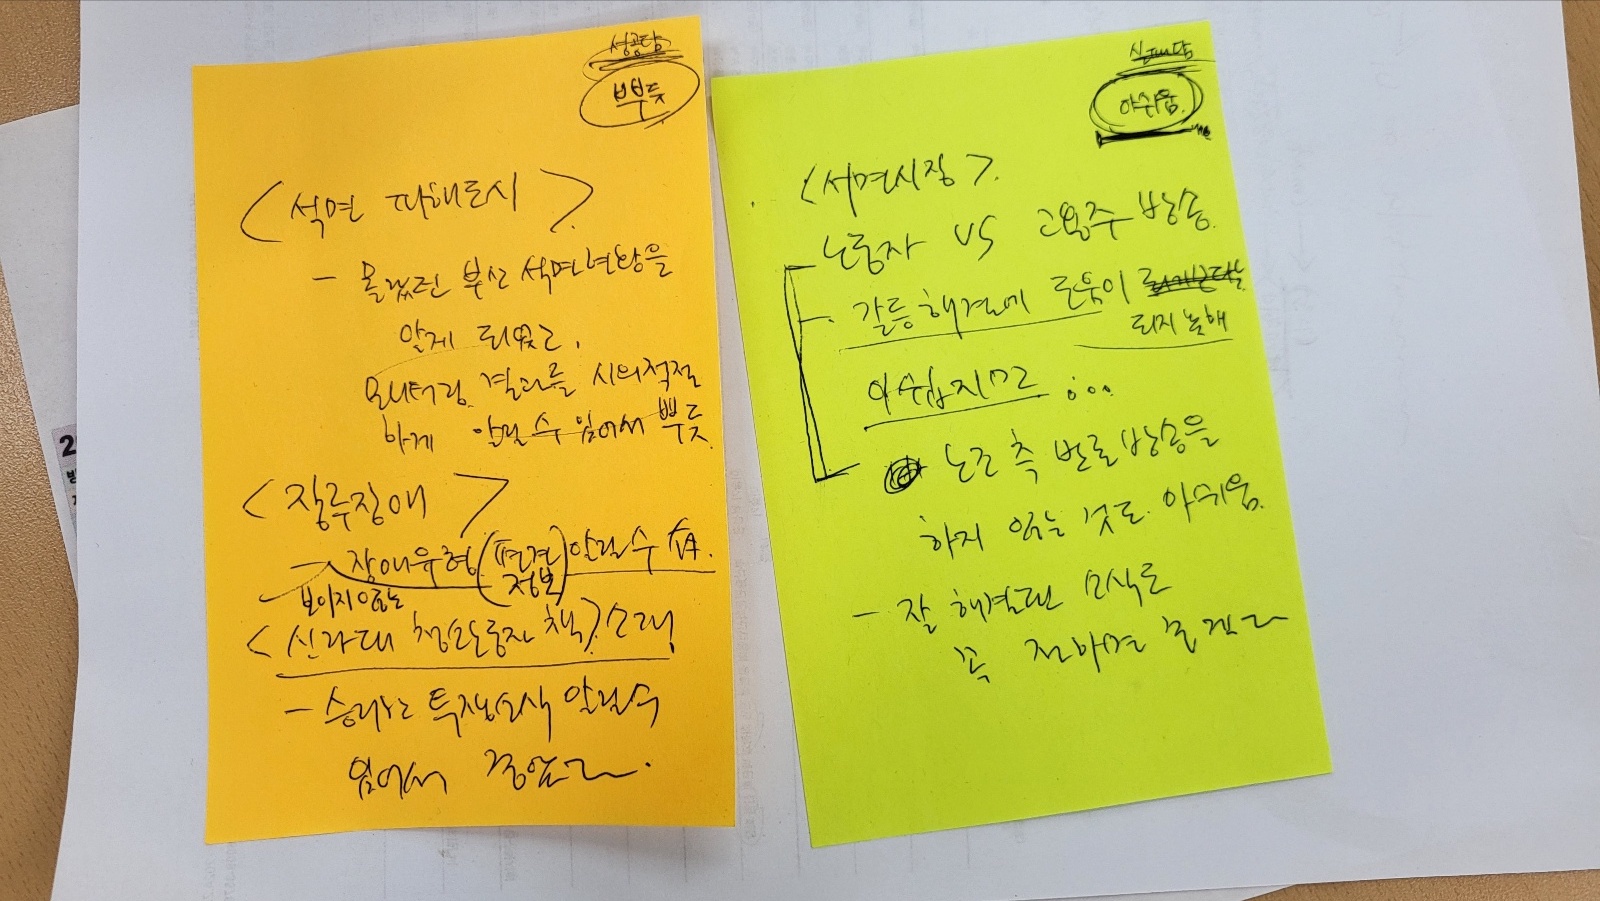 성공담
뿌듯
<석면 피해도시>
- 몰랐던 부산 석면현황을
알게 되었고,
모니터링 결과를 시의적절
하게 알릴 수 있어서 뿌듯
<장루장애>
- 장애유형 (편견 정보) 알릴 수 有.
보이지 않는
<신라대 청소노동자 책> 소개
- 승리하는 투쟁소식 알릴 수
있어서 좋았고~.
실패담
아쉬움
<서면시장>
노동자 VS 고용주 방송
- 갈등해결에 도움이
되지 못해
아쉽지만 ...
노조 측 반론방송을
하지 않는 것도 아쉬움.
- 잘 해결된 소식도
꼭 전하면 좋겠다